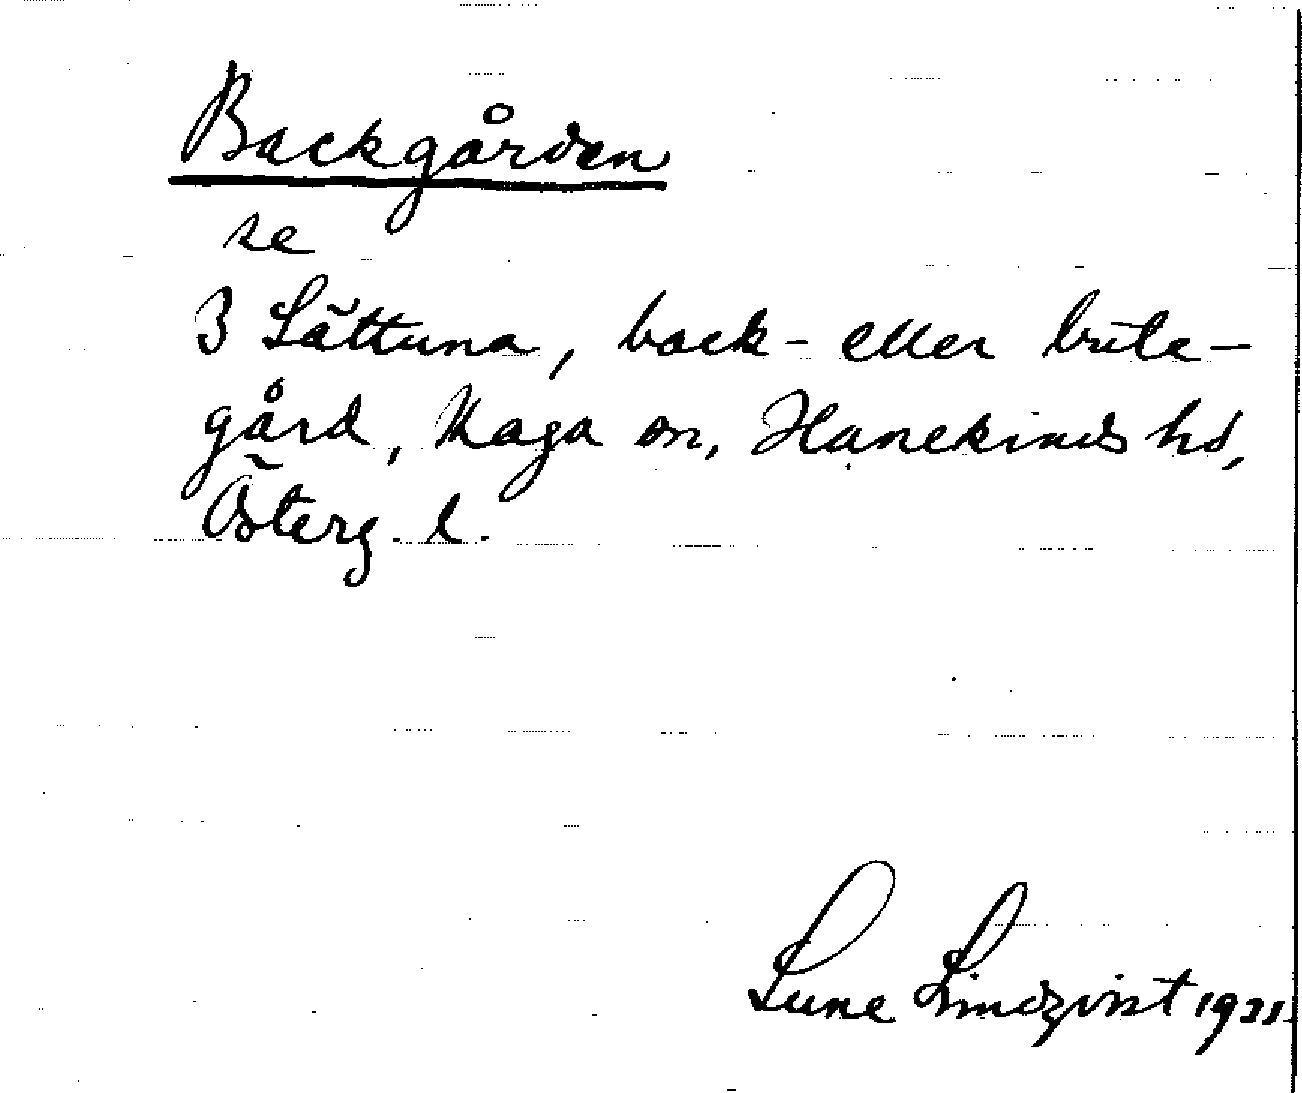 Backgården
se
3 Lättuna, back- eller bute-
gård, Kaga sn, Hanekinds hd,
Österg. l.
Sune Lindqvist